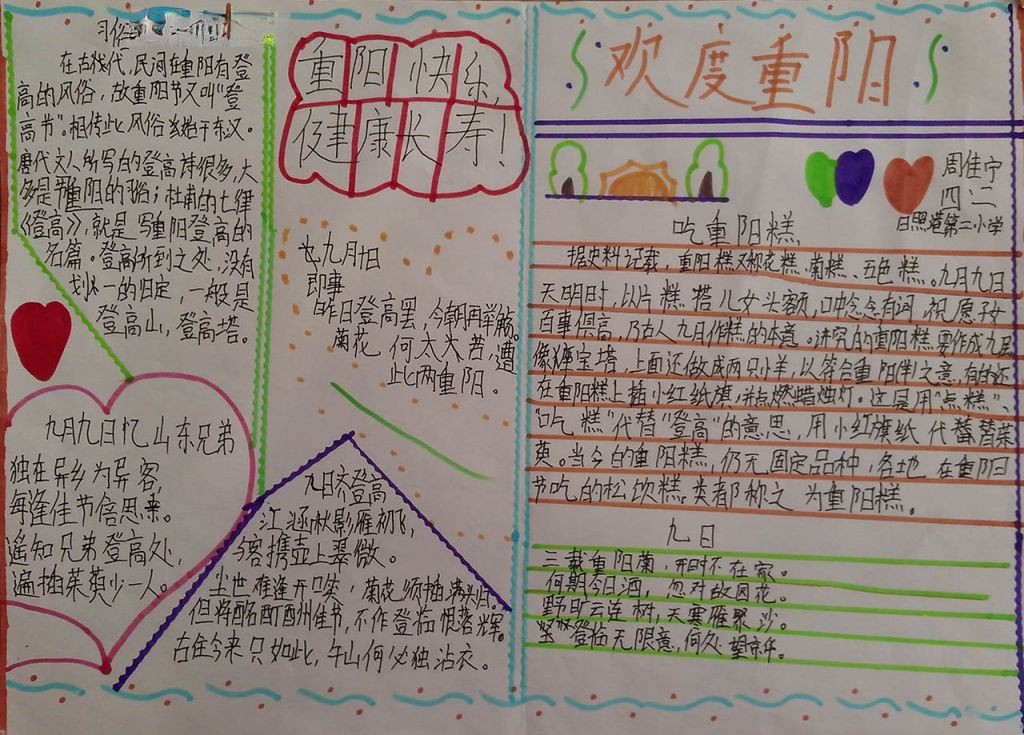 习俗
在古代,民间在重阳有登
高的风俗,故重阳节又叫“登
高节”。相传此风俗始于东汉。
唐代文人所写的登高诗很多,大
多是写重阳的习俗;杜甫的七律
《登高》,就是写重阳登高的
名篇。登高所到之处,没有
划一的归定,一般是
登高山,登高塔。
九月九日忆山东兄弟
独在异乡为异客,
每逢佳节倍思来。
遥知兄弟登高处,
遍插茱萸少一人。
重阳快乐,
健康长寿!
九月十日
即事
昨日登高罢,今朝再举觞。
菊花何太大苦,遭
此两重阳。
九日齐登高
江涵秋影雁初飞,
与客携壶上翠微。
尘世难逢开口笑,菊花须插满头归。
但将酩酊酬佳节,不作登临恨落辉。
古往今来只如此,牛山何必独沾衣。
欢度重阳
周佳宁
四·二
日照道第二小学
吃重阳糕
据史料记载,重阳糕又称花糕、菊糕、五色糕。九月九日
天明时,以片糕搭儿女头额,口中念念有词,祝愿子女
百事俱高,乃古人九月作糕的本意。讲究的重阳糕要作成九层,
像座宝塔,上面还做成两只小羊,以符合重阳(羊)之意。有的还
在重阳糕上插小红纸旗,并点燃蜡烛灯。这是用“点糕”、
“吃糕”代替“登高”的意思,用小红旗纸代替茱
萸。当今的重阳糕,仍无固定品种,各地在重阳
节吃的松饮糕类都称之为重阳糕。
九日
三载重阳菊,开时不在家。
何期今日酒,忽对故园花。
野旷云连树,天寒雁聚沙。
登临无限意,何处望京华。